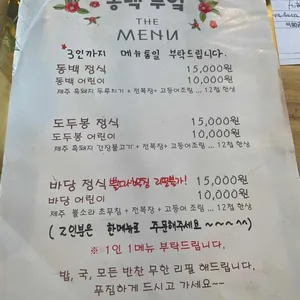 동백부엌
THE
MENU
3인까지 메뉴통일 부탁드립니다.
동백 정식 15,000원
동백 어린이 10,000원
제주 흑돼지 두루치기 + 전복장 + 고등어조림 ... 12첩 한상
도두봉 정식 15,000원
도두봉 어린이 10,000원
제주 흑돼지 간장불고기 + 전복장 + 고등어조림 ... 12첩 한상
바당 정식 리필불가! 15,000원
바당 어린이 10,000원
제주 뿔소라 초무침 + 전복장 + 고등어조림 ... 12첩 한상
(2인분은 한메뉴로 주문해주세요 ~~~^^)
※ 1인 1메뉴 부탁드립니다.
밥, 국, 모든 반찬 무한 리필 해드립니다.
푸짐하게 드시고 가세요~~